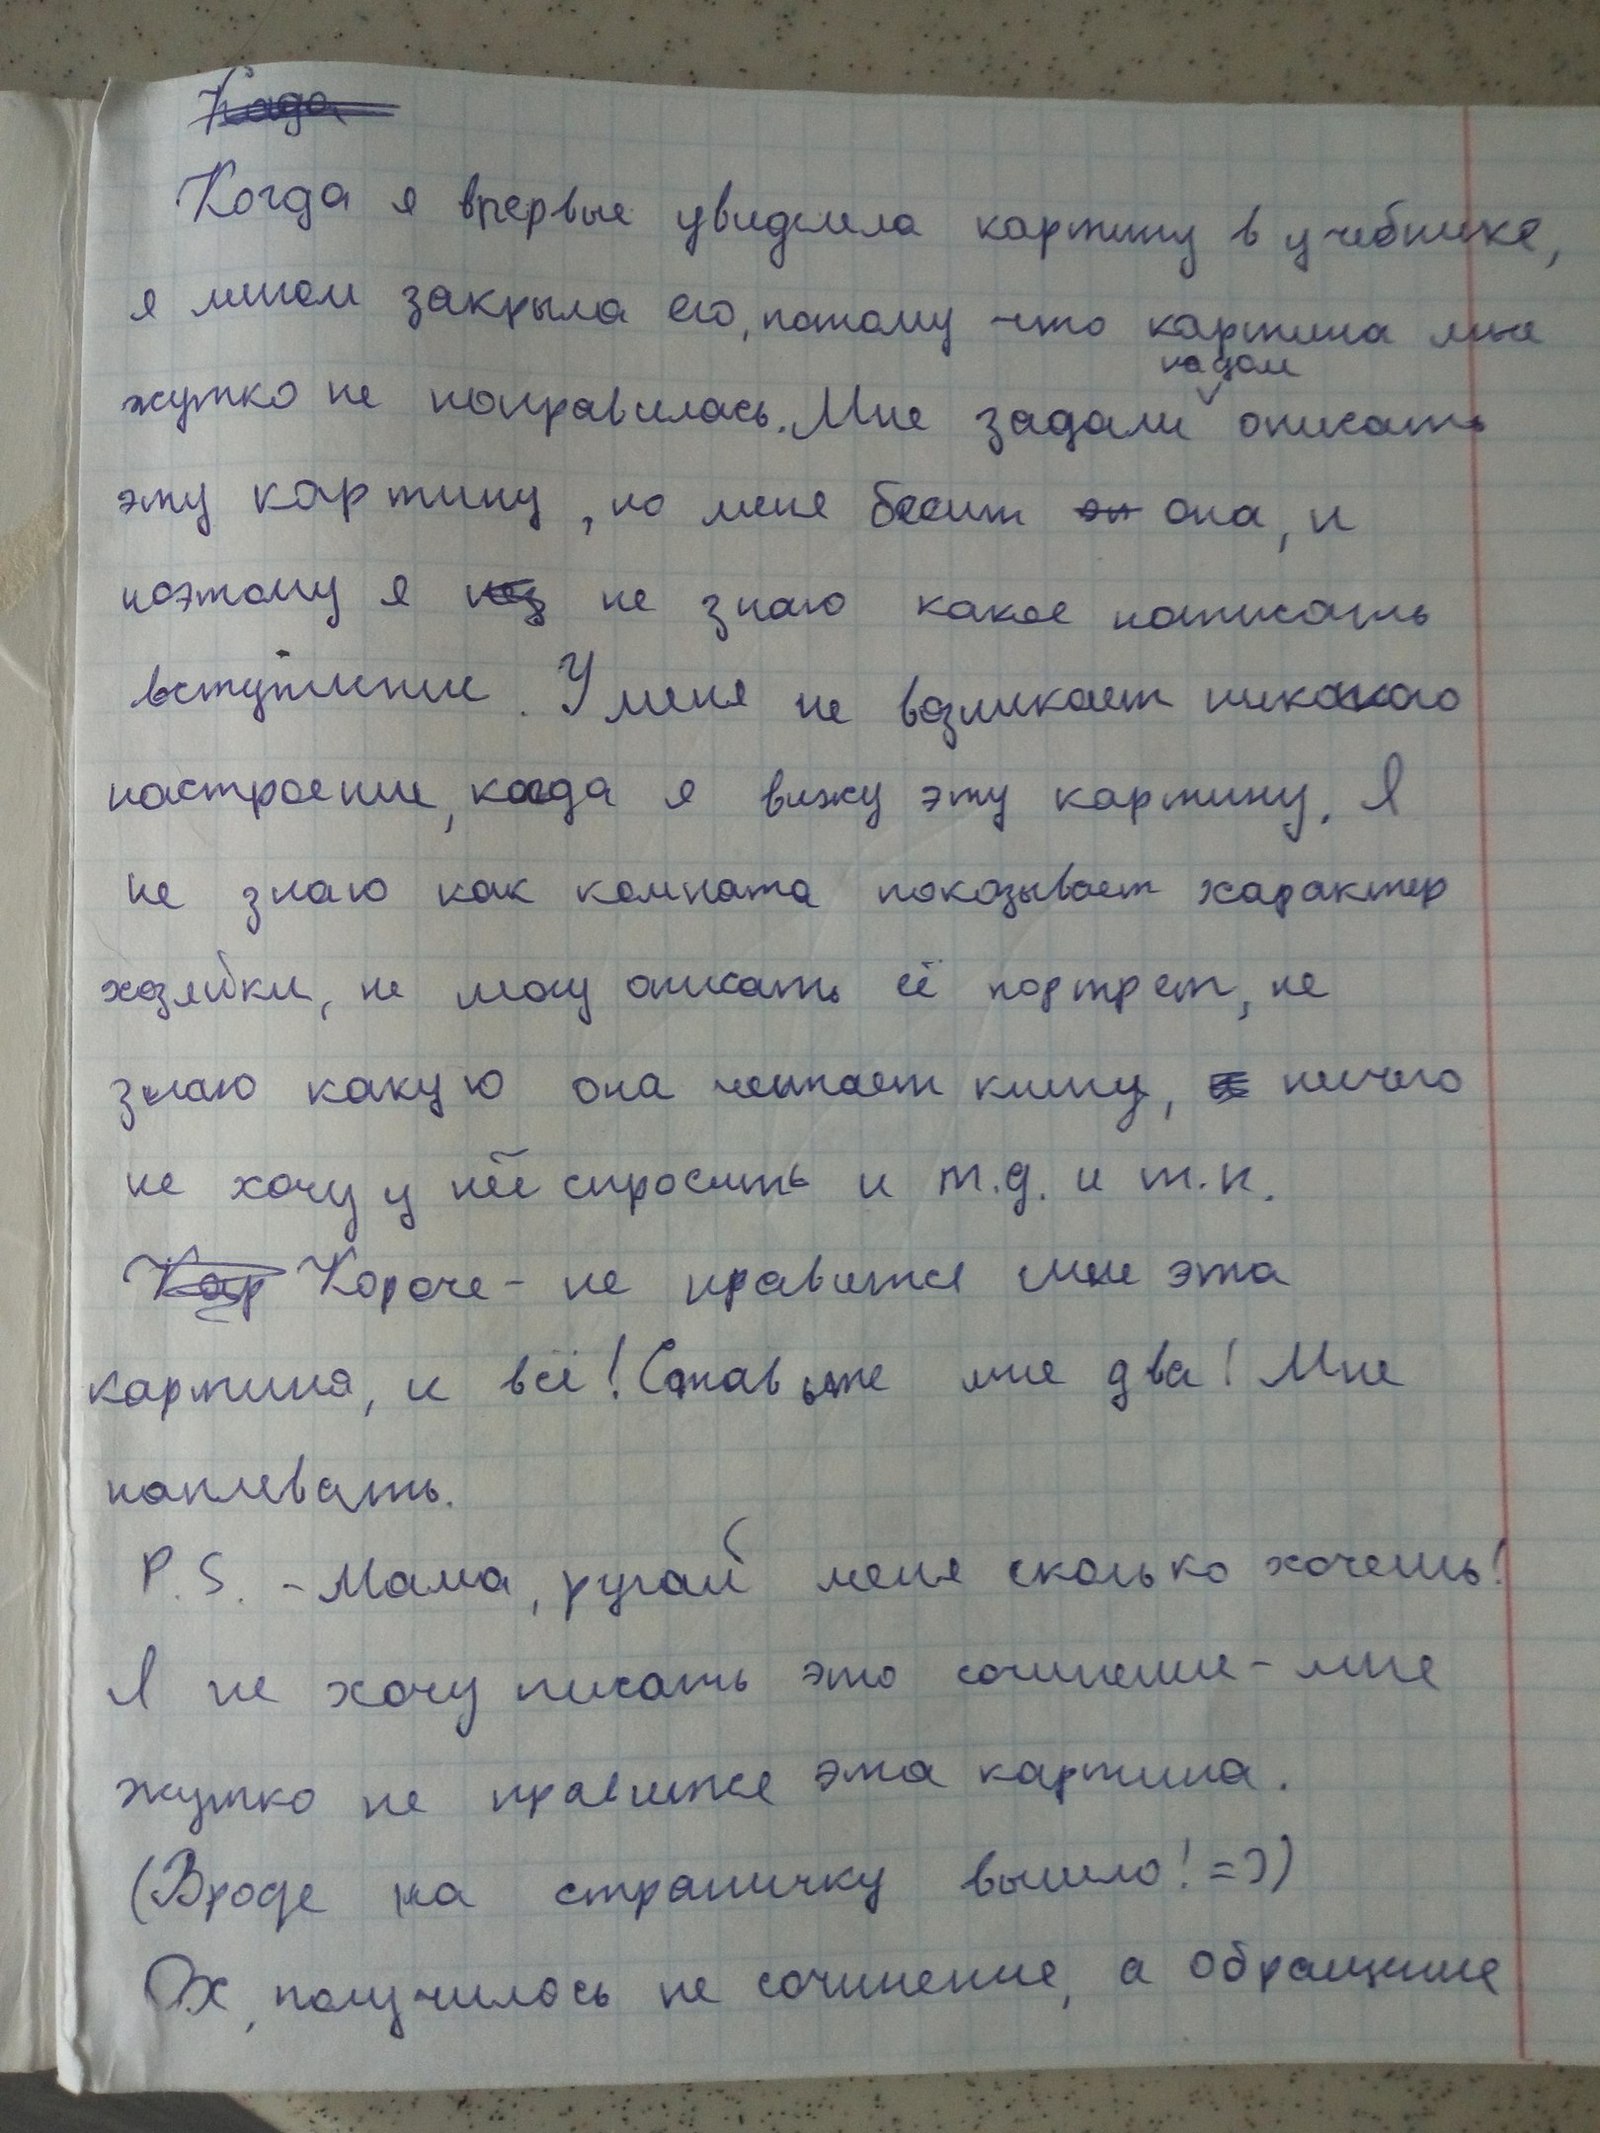 Када
Когда я впервые увидела картину в учебнике,
я мигом закрыла его, потому что картина мне
жутко не понравилась. Мне задали надом описать
эту картину, но меня бесит эт она, и
поэтому я не знаю какое написать
вступление. У меня не возникает никакого
настроение, когда я вижу эту картину. Я
не знаю как комната показывает характер
хозяйки, не могу описать её портрет, не
знаю какую она читает книгу, ничего
не хочу у неё спросить и т.д. и т.п.
Кар Короче - не нравится мне эта
картина, и всё! Ставьте мне два! Мне
наплевать.
P.S. - Мама, ругай меня сколько хочешь!
Я не хочу писать это сочинение - мне
жутко не нравится эта картина.
(Вроде на страничку вышло! =))
Ох, получилось не сочинение, а обращение